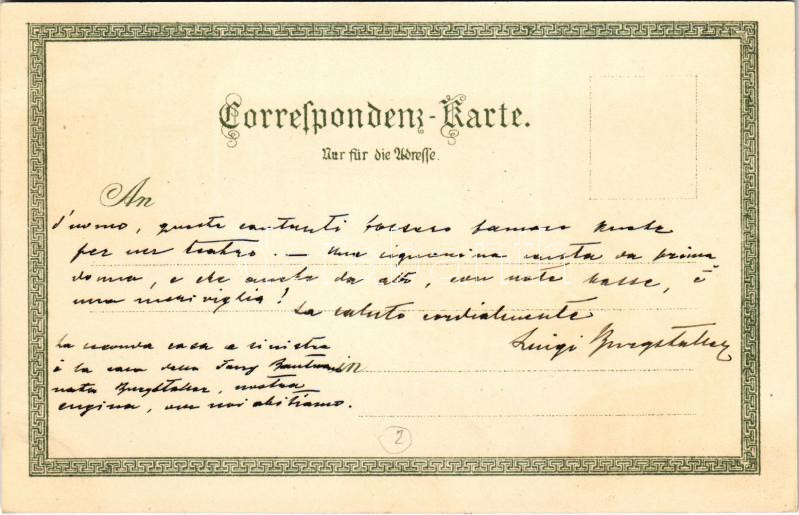 Correspondenz-Karte.
Nur für die Adresse.
An
d'uomo, queste cantanti fossero famose anche
per un teatro. — Una signorina canta da prima
donna, e che anche da alto, con note basse, è
una meraviglia!
La saluto cordialmente
Luigi Burgstaller
La seconda casa a sinistra
è la casa della
in
nata Burgstaller, nostra
cugina, ove noi abitiamo.
2